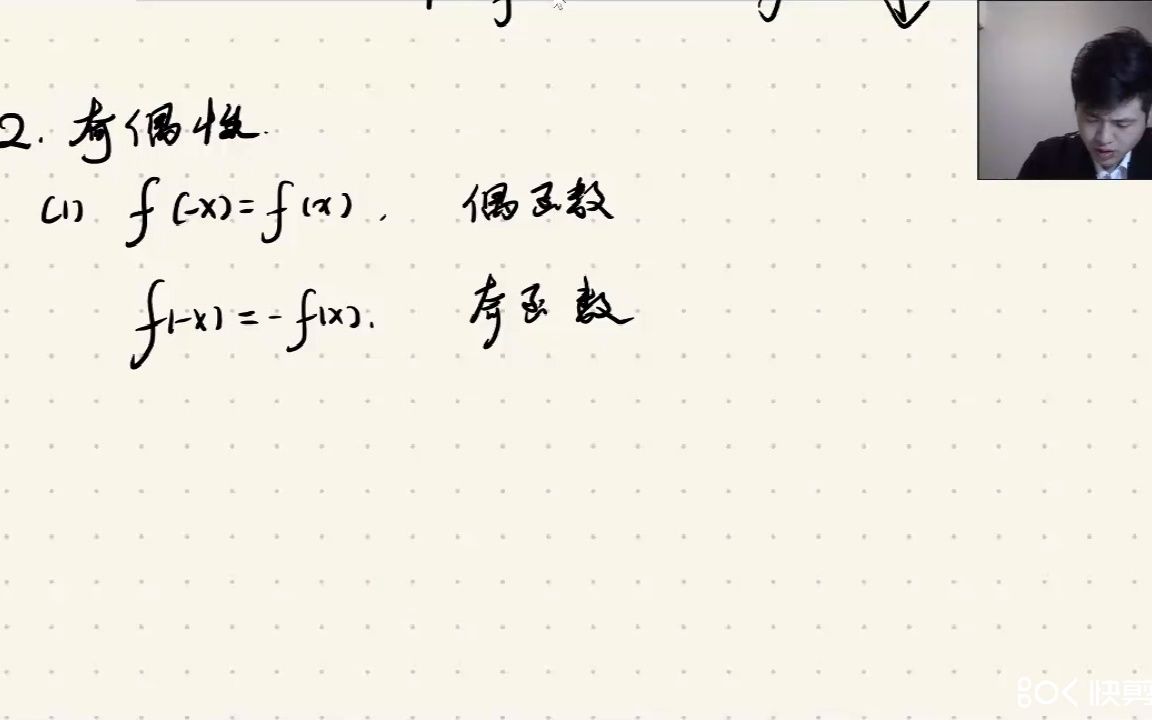 2. 奇偶性.
(1) f(-x)=f(x), 偶函数
f(-x)=-f(x). 奇函数
快剪